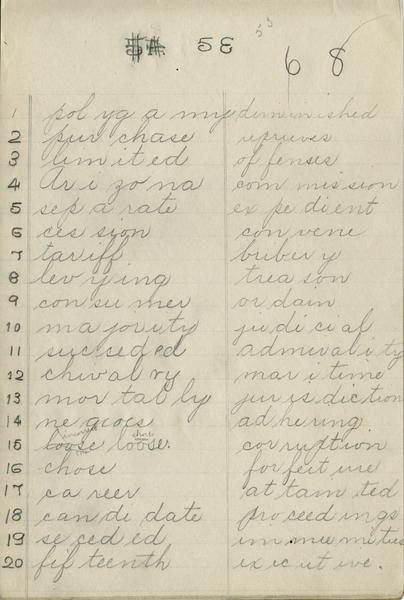 58 53
68
1 pol yg a my diminished
2 pur chase reprieves
3 lim it ed of fenses
4 Ar i zo na com mission
5 sep a rate ex pe dient
6 ces sion con vene
7 tar iff bribery
8 lev ying trea son
9 con su mer or dain
10 ma jority ju di cial
11 suc ced ed admiral ity
12 chival ry mar i time
13 mor tal ly jur is diction
14 ne groes ad hering
15 loose loose. cor ruption
16 chose for feit ure
17 ca reer at tain ted
18 can di date pro ceed ings
19 se ced ed im mu nities
20 fif teenth ex ic ut ive.